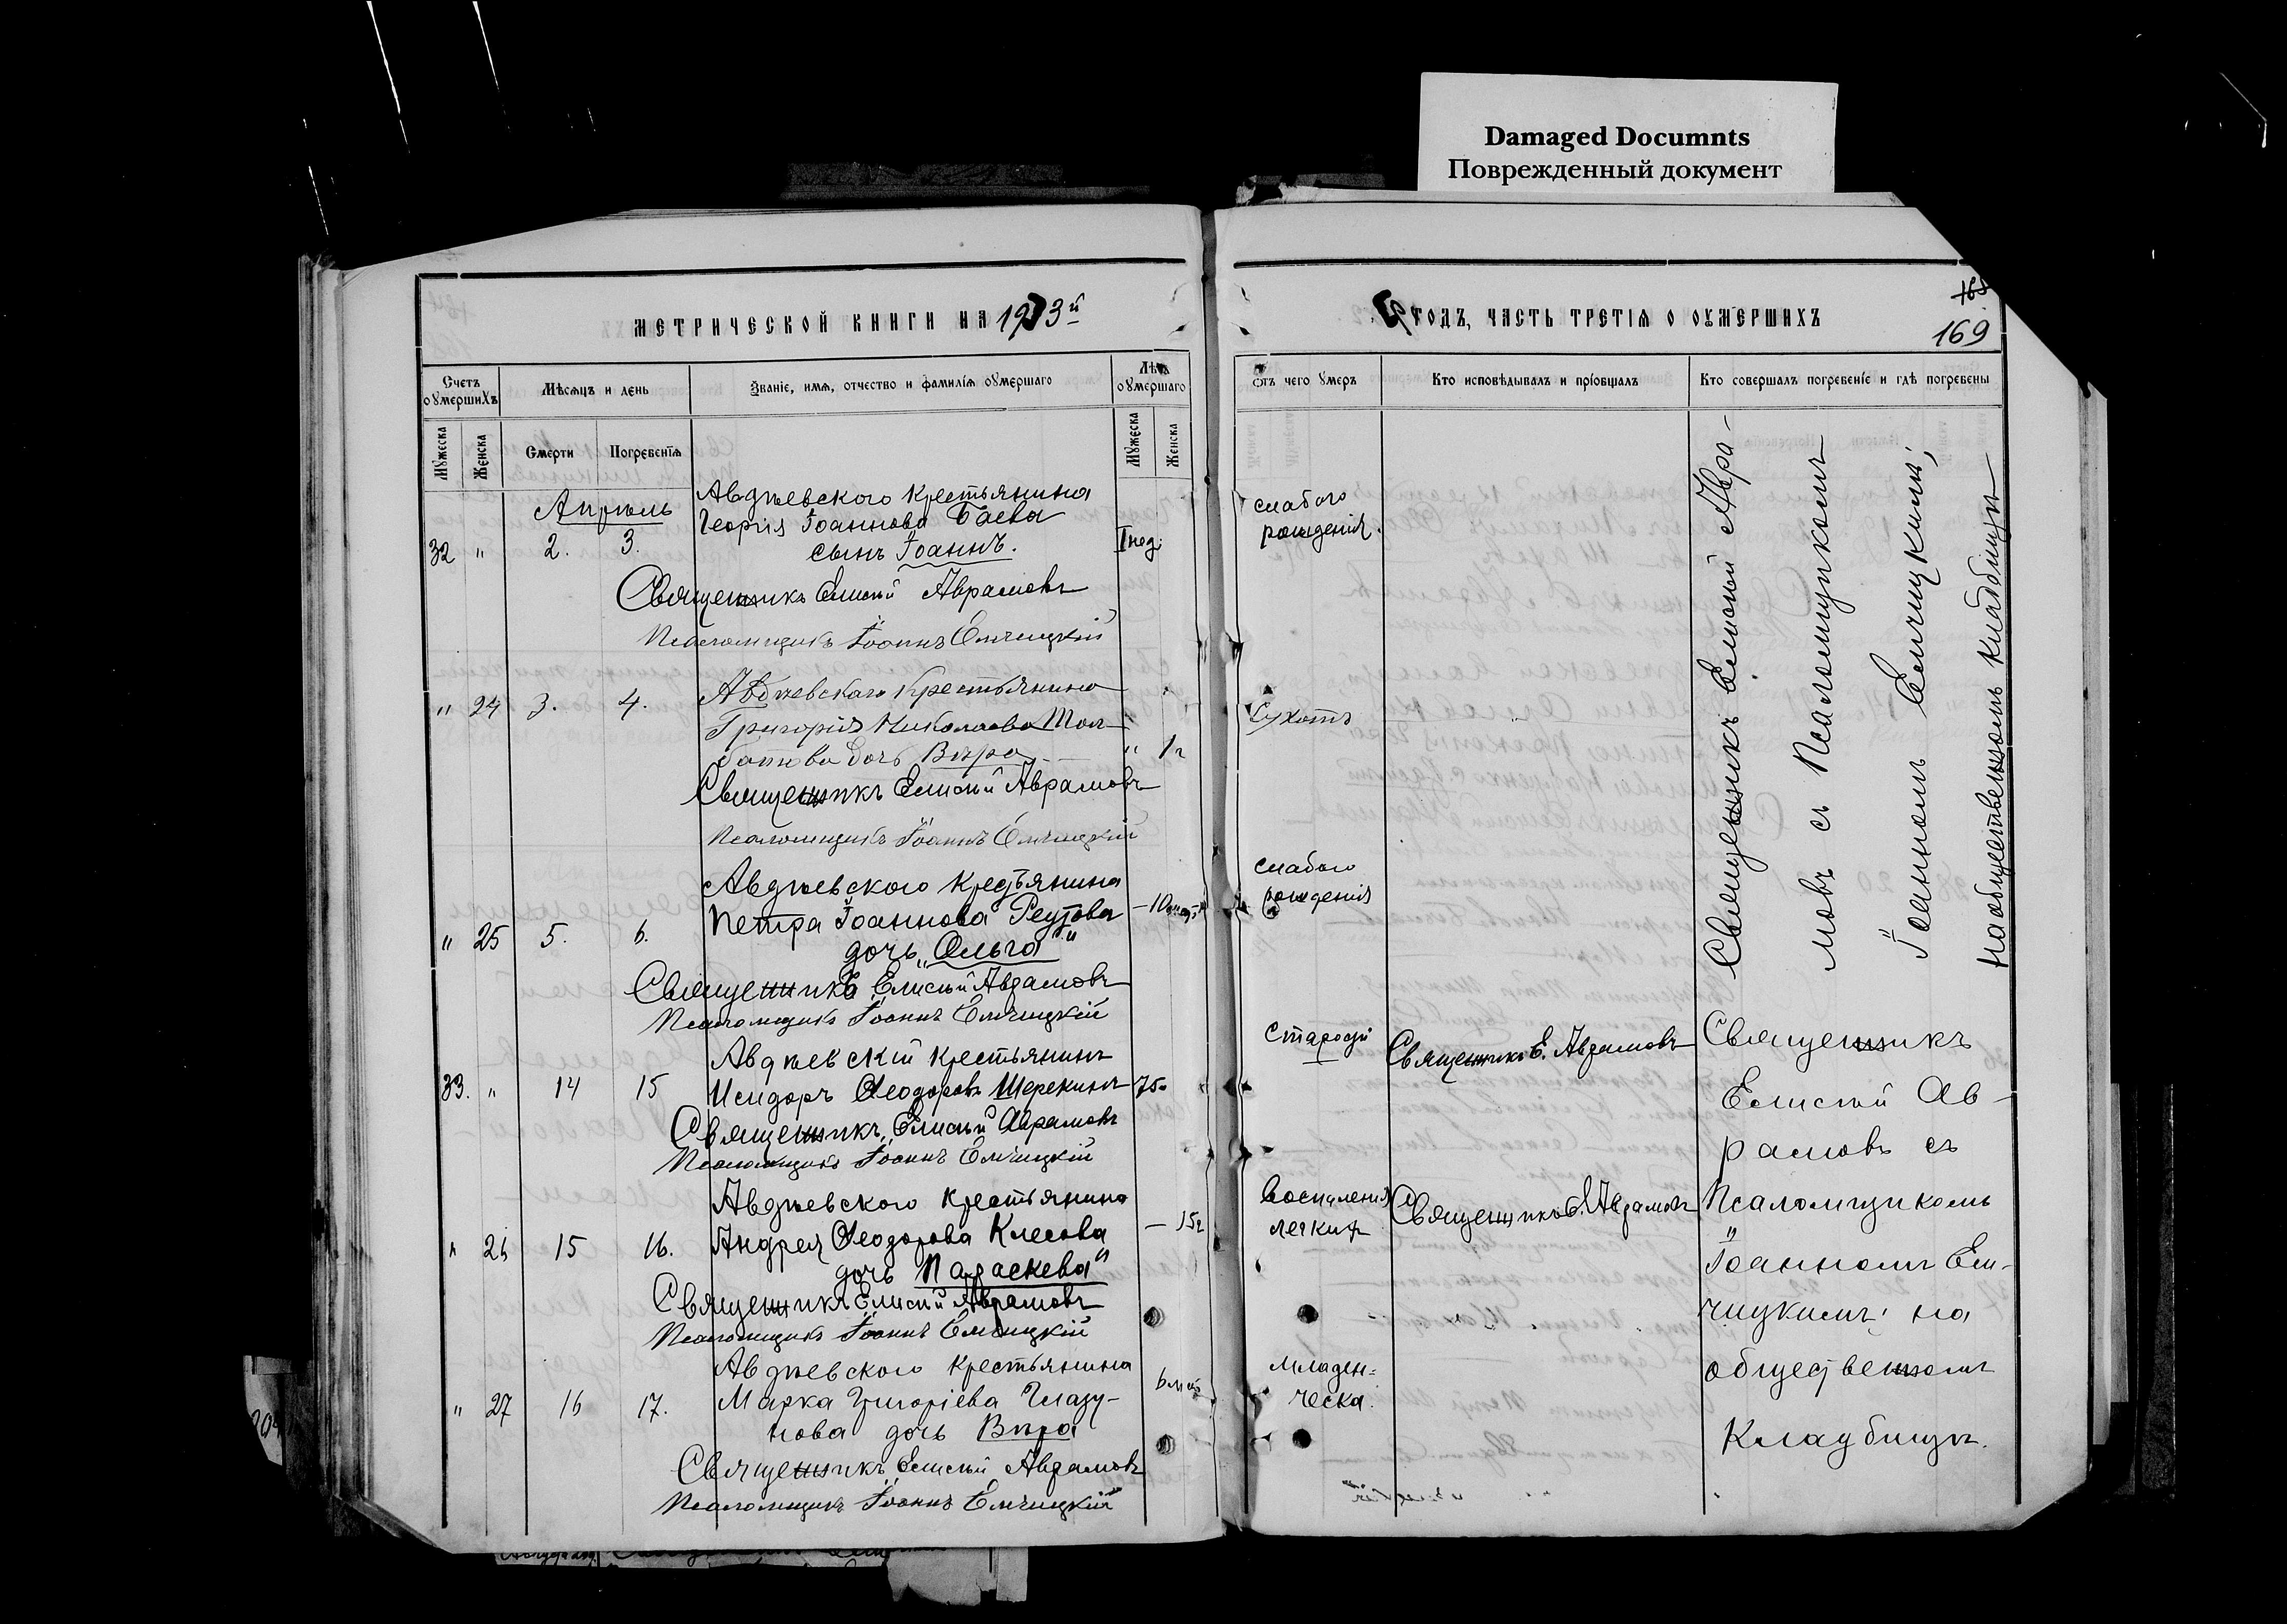 Damaged Documnts
Поврежденный документ
МЕТРИЧЕСКОЙ КНИГИ НА 1913й
ГОДЪ, ЧАСТЬ ТРЕТІЯ О ОУМЕРШИХЪ
168
169
Счетъ оумершихъ
Мѣсяцъ и день
Званіе, имя, отчество и фамилія оумершаго
Лѣта оумершаго
Отъ чего умеръ
Кто исповѣдывалъ и пріобщалъ
Кто совершалъ погребеніе и гдѣ погребены
Мужеска
Женска
Смерти
Погребенія
Мужеска
Женска
Апрѣль
Авдѣевского крестьянина
Георгія Іоаннова Баева
32 " 2. 3. сынъ Іоаннъ. 1 нед.
слабого
рожденія.
Священникъ Елисей Аврамовъ
Псаломщикъ Іоаннъ Емчицкій
" 24 3. 4. Авдѣевскаго крестьянина
Григорія Николаева
дочь Вѣра " 1 г
Сухотъ
Священникъ Елисей Аврамовъ
Псаломщикъ Іоаннъ Емчицкій
Авдѣевского крестьянина
Петра Іоаннова Реутова
" 25 5. 6. дочь „Ольга"
слабого
рожденія
Священникъ Елисей Аврамовъ
Псаломщикъ Іоаннъ Емчицкій
Священникъ Елисей Авра-
мовъ съ Псаломщикомъ
Іоанномъ Емчицкимъ,
на общественномъ кладбищѣ
Авдѣевскій крестьянинъ
33. " 14 15 Исидоръ Ѳеодоровъ Шерекинъ 75
Старости
Священникъ Е. Аврамовъ
Священникъ Елисей Аврамовъ
Псаломщикъ Іоаннъ Емчицкій
Авдѣевского крестьянина
" 26 15 16. Андрея Ѳеодорова Клесова — 15 г
дочь Параскева"
Воспаленія
легкихъ
Священникъ Е. Аврамовъ
Священникъ Елисей Аврамовъ
Псаломщикъ Іоаннъ Емчицкій
Авдѣевского крестьянина
" 27 16 17. Марка Григоріева Глазу-
нова дочь Вѣра
6 мѣс
Младен-
ческа.
Священникъ Елисей Аврамовъ
Псаломщикъ Іоаннъ Емчицкій
Священникъ
Елисей Ав-
рамовъ съ
Псаломщикомъ
Іоанномъ Ем-
чицкимъ; на
общественномъ
Кладбищѣ.